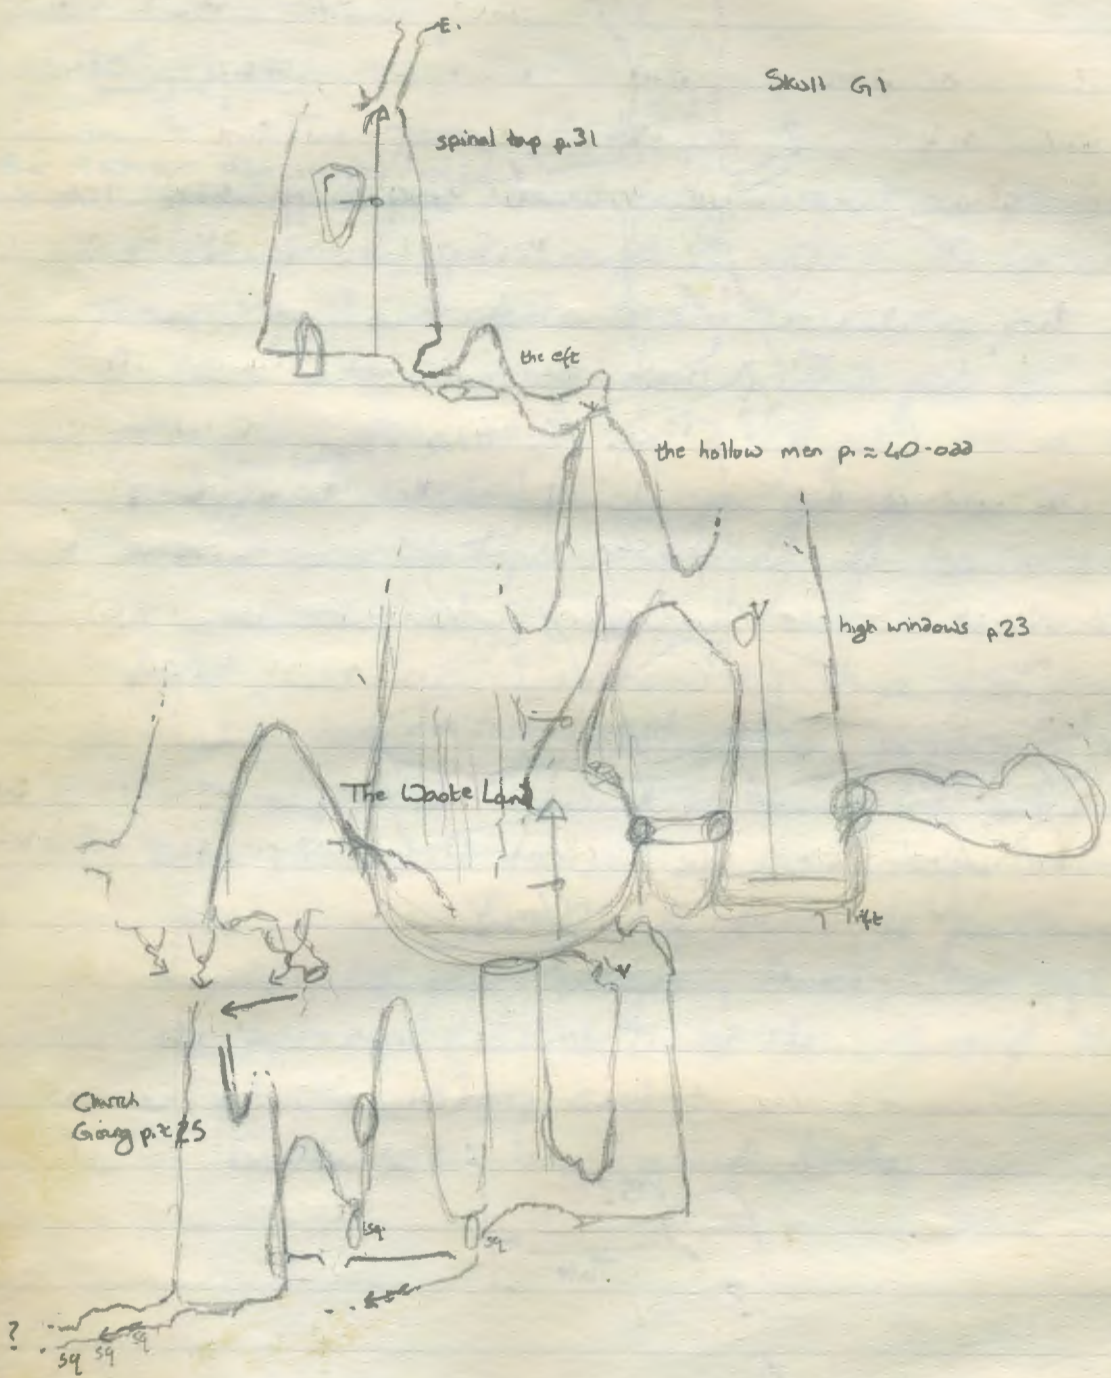 E.
Skull G1
spinal tap p.31
the eft
the hollow men p. ≈ 40-odd
high windows p23
The Waste Land
Church
Going p.≈ 25
sq.
sq
?
sq sq sq